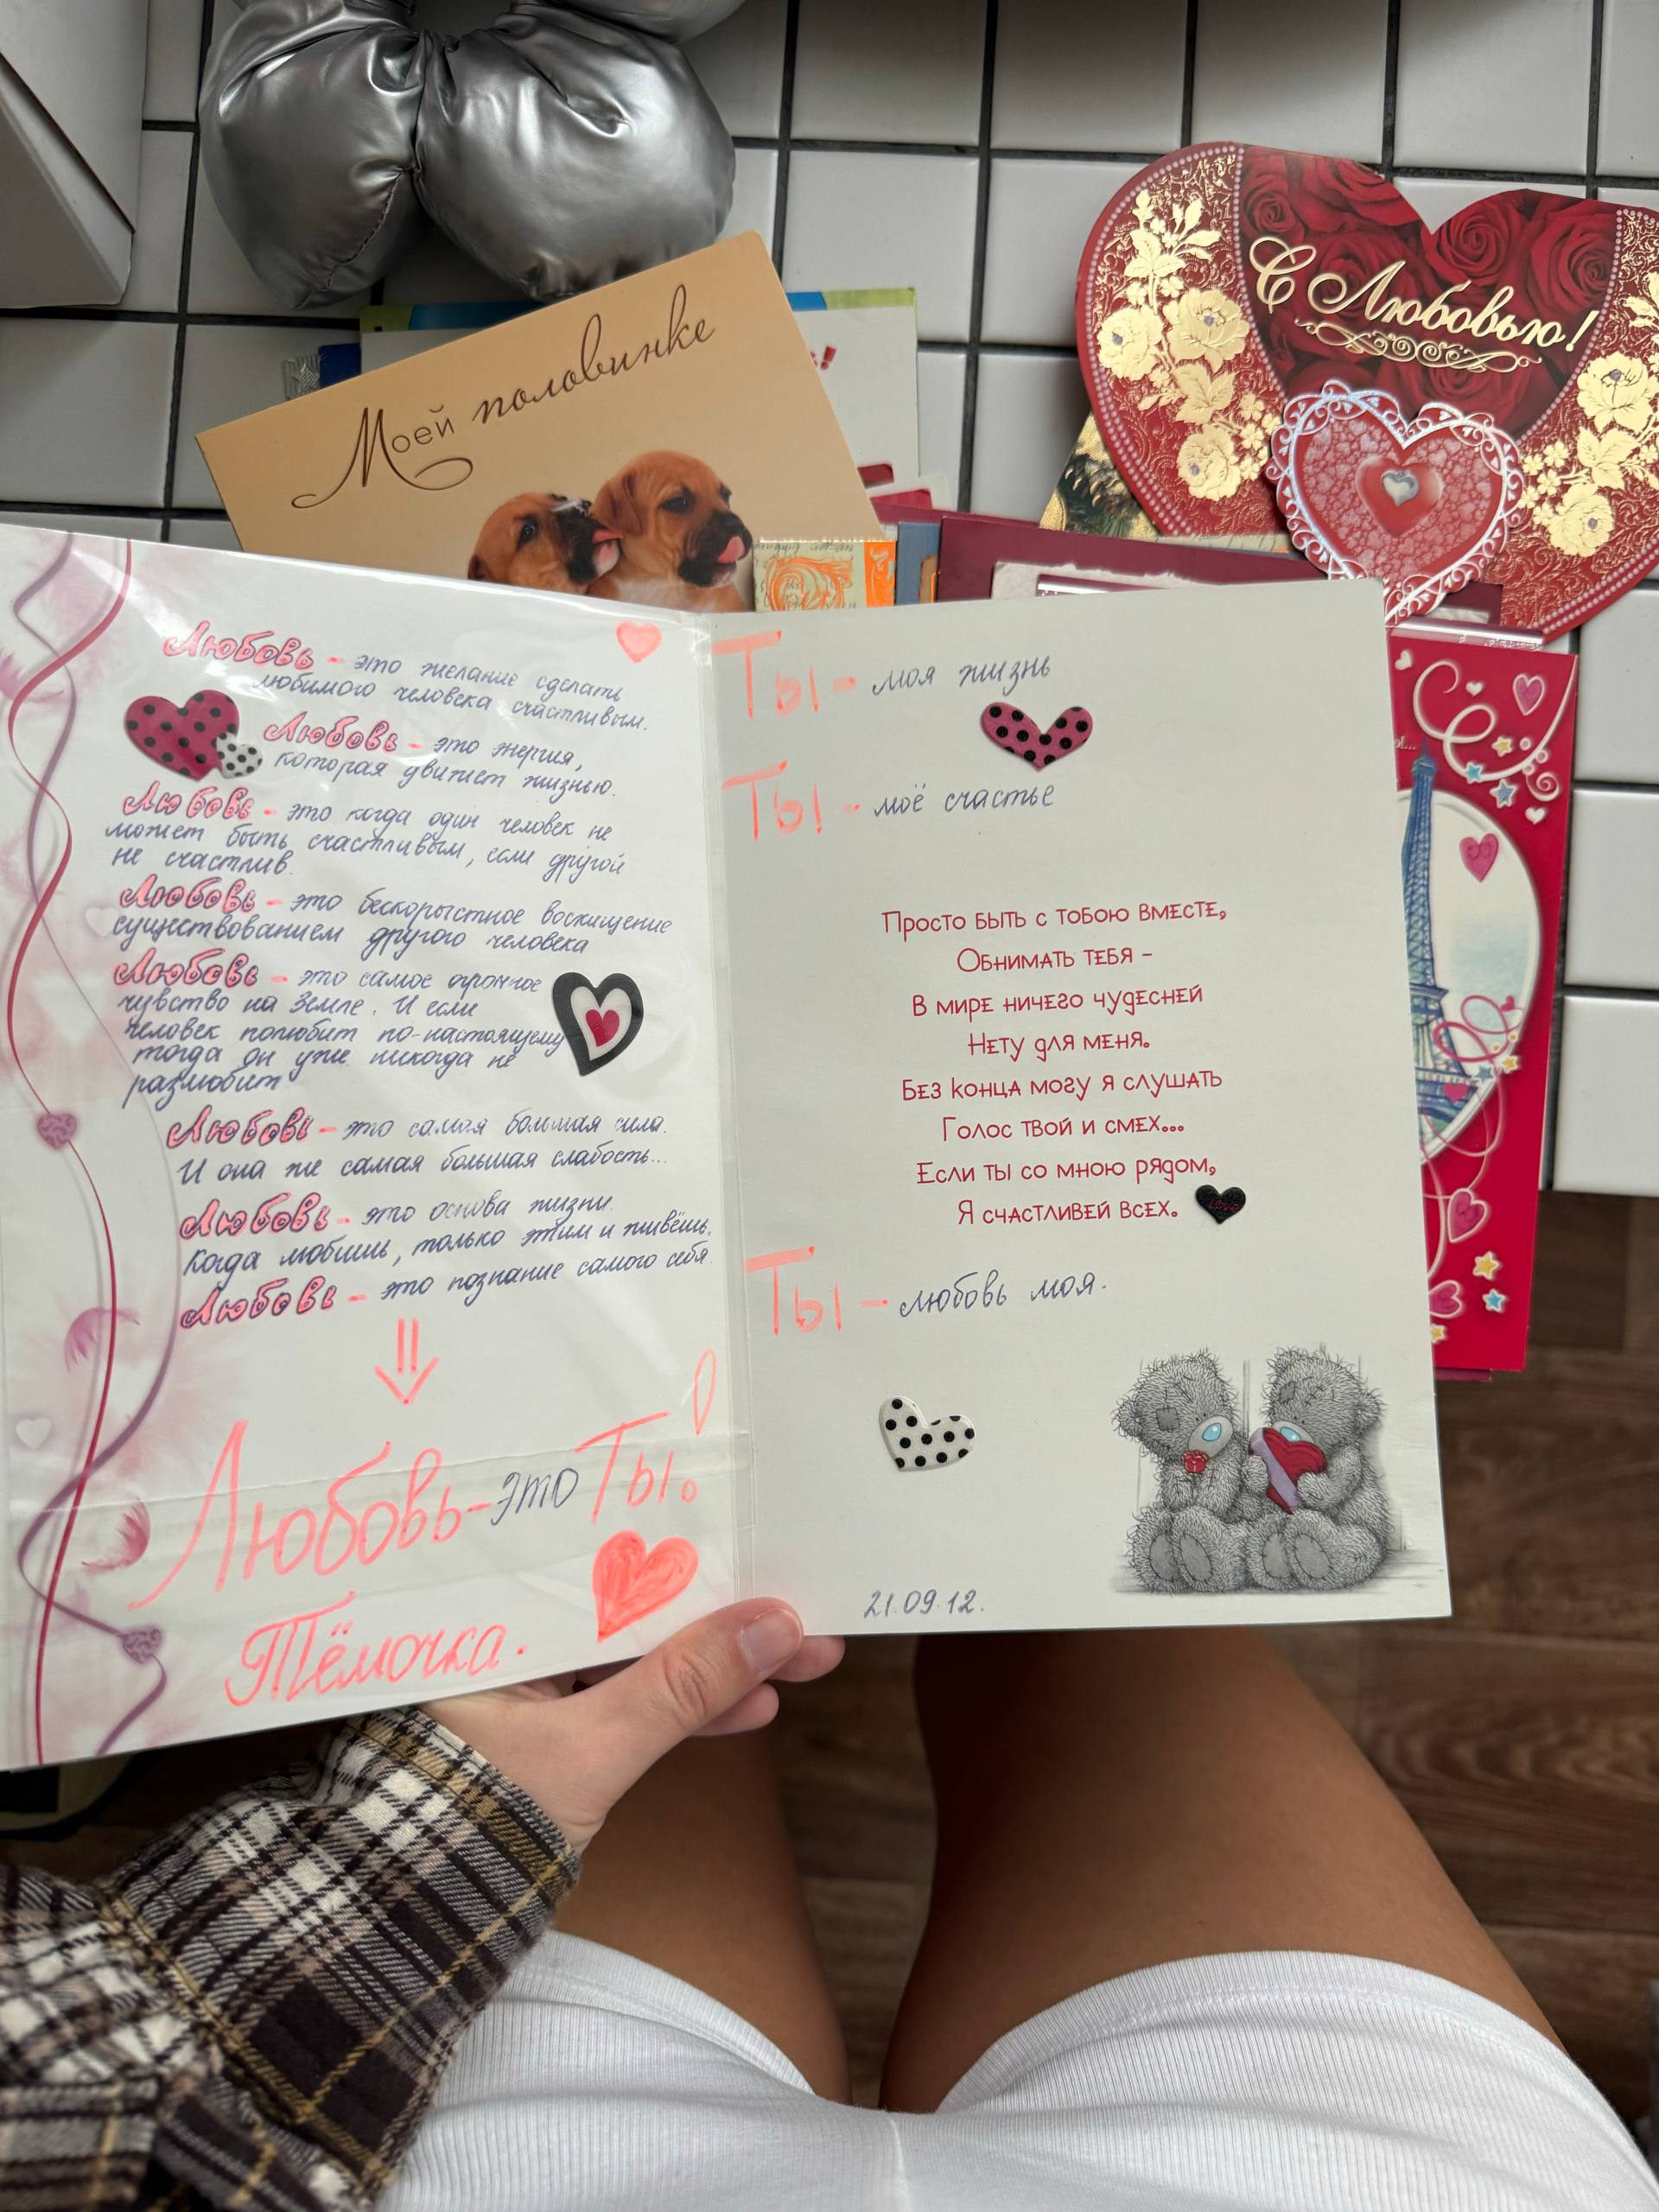 С Любовью!
Моей половинке
Любовь - это желание сделать
любимого человека счастливым.
Любовь - это энергия,
которая движет жизнью.
Любовь - это когда один человек не
может быть счастливым, если другой
не счастлив.
Любовь - это бескорыстное восхищение
существованием другого человека
Любовь - это самое огромное
чувство на Земле. И если
человек полюбит по-настоящему
тогда он уже никогда не
разлюбит
Любовь - это самая большая сила.
И она же самая большая слабость...
Любовь - это основа жизни.
Когда любишь, только этим и живёшь.
Любовь - это познание самого себя.
Любовь - это Ты!
Тёмочка.
Ты - моя жизнь
Ты - моё счастье
Просто быть с тобою вместе,
Обнимать тебя -
В мире ничего чудесней
Нету для меня.
Без конца могу я слушать
Голос твой и смех...
Если ты со мною рядом,
Я счастливей всех.
Ты - любовь моя.
21.09.12.